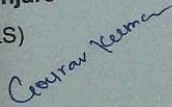 S)
Gourav Kumar